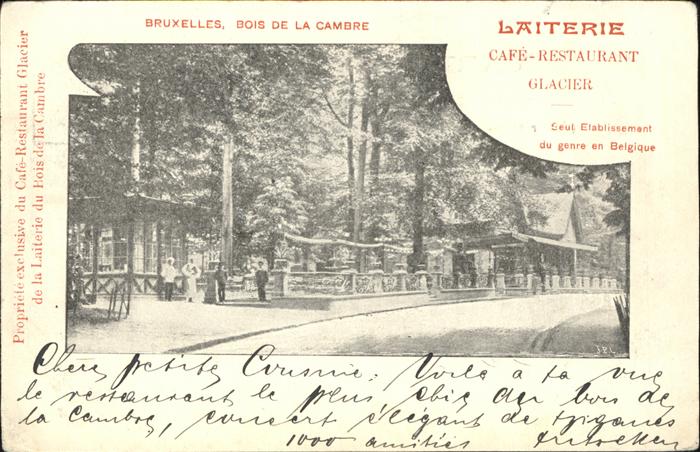 BRUXELLES, BOIS DE LA CAMBRE
LAITERIE
CAFÉ-RESTAURANT
GLACIER
Seul Etablissement
du genre en Belgique
Propriété exclusive du Café-Restaurant Glacier
de la Laiterie du Bois de la Cambre
J.P.L.
Chere petite Cousine: Voilà à ta vue
le restaurant le plus chic du bois de
la Cambre, concert élégant de tziganes
1000 amitiés